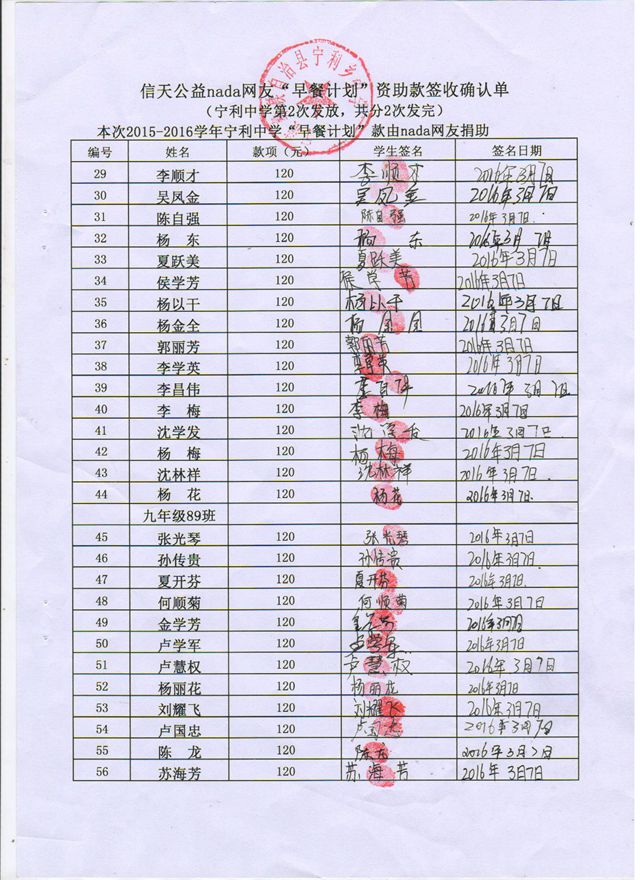 信天公益nada网友“早餐计划”资助款签收确认单
（宁利中学第2次发放，共分2次发完）
本次2015-2016学年宁利中学“早餐计划”款由nada网友捐助
编号 姓名 款项（元） 学生签名 签名日期
29 李顺才 120 李顺才 2016年3月7日
30 吴凤金 120 吴凤金 2016年3月7日
31 陈自强 120 陈自强 2016年3月7日
32 杨 东 120 杨 东 2016年3月7日
33 夏跃美 120 夏跃美 2016年3月7日
34 侯学芳 120 侯学芳 2016年3月7日
35 杨以干 120 杨以干 2016年3月7日
36 杨金全 120 杨金全 2016年3月7日
37 郭丽芳 120 郭丽芳 2016年3月7日
38 李学英 120 2016年3月7日
39 李昌伟 120 2016年3月7日
40 李 梅 120 李梅 2016年3月7日
41 沈学发 120 2016年3月7日
42 杨 梅 120 杨梅 2016年3月7日
43 沈林祥 120 沈林祥 2016年3月7日
44 杨 花 120 杨花 2016年3月7日
九年级89班
45 张光琴 120 张光琴 2016年3月7日
46 孙传贵 120 孙传贵 2016年3月7日
47 夏开芬 120 夏开芬 2016年3月7日
48 何顺菊 120 何顺菊 2016年3月7日
49 金学芳 120 2016年3月7日
50 卢学军 120 卢学军 2016年3月7日
51 卢慧权 120 卢慧权 2016年3月7日
52 杨丽花 120 2016年3月7日
53 刘耀飞 120 刘耀飞 2016年3月7日
54 卢国忠 120 卢国忠 2016年3月7日
55 陈 龙 120 陈龙 2016年3月7日
56 苏海芳 120 苏海芳 2016年3月7日